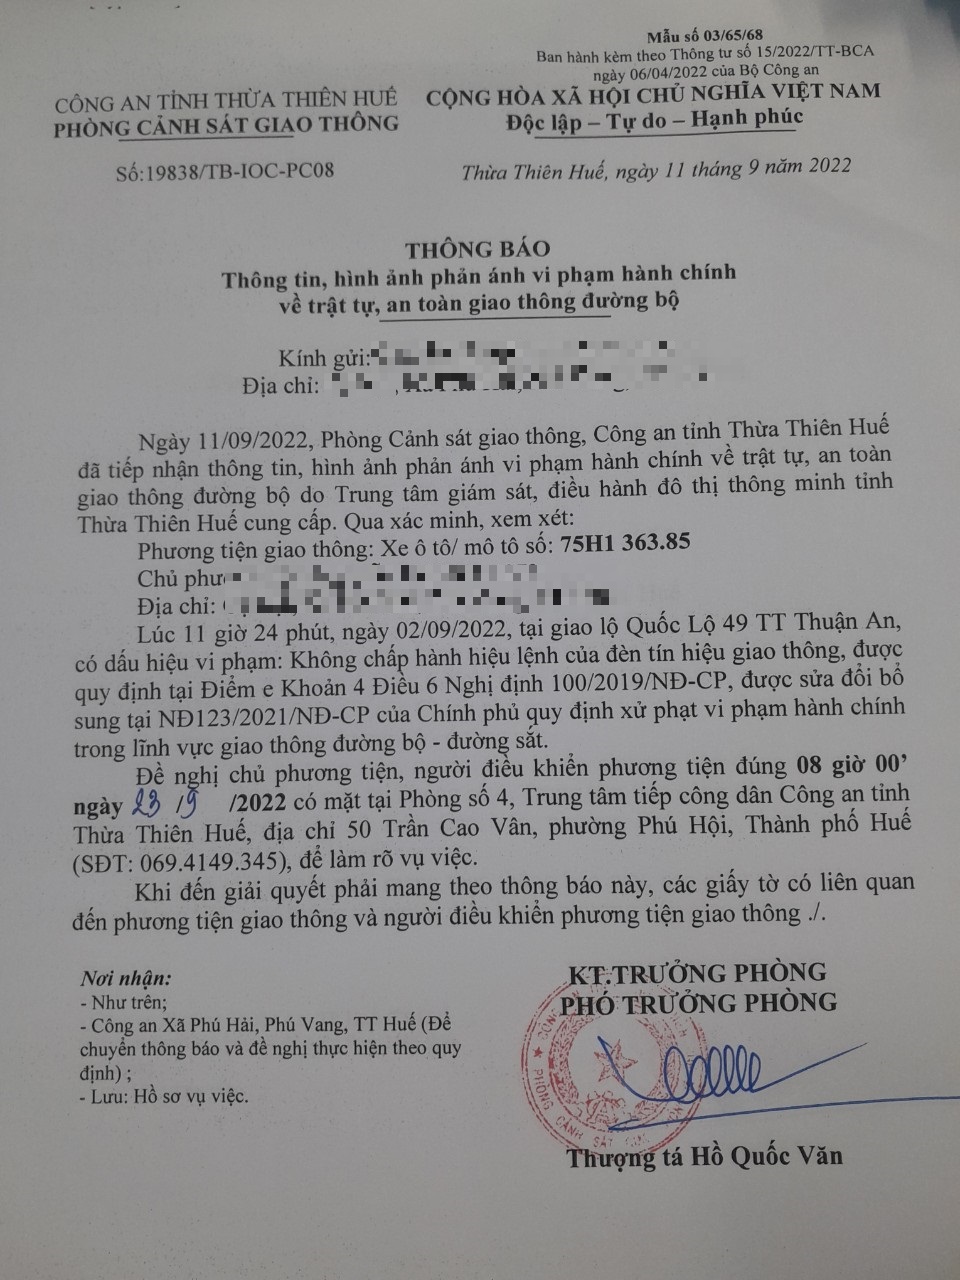 Mẫu số 03/65/68
Ban hành kèm theo Thông tư số 15/2022/TT-BCA
ngày 06/04/2022 của Bộ Công an
CÔNG AN TỈNH THỪA THIÊN HUẾ
PHÒNG CẢNH SÁT GIAO THÔNG
CỘNG HÒA XÃ HỘI CHỦ NGHĨA VIỆT NAM
Độc lập – Tự do – Hạnh phúc
Số:19838/TB-IOC-PC08
Thừa Thiên Huế, ngày 11 tháng 9 năm 2022
THÔNG BÁO
Thông tin, hình ảnh phản ánh vi phạm hành chính
về trật tự, an toàn giao thông đường bộ
Kính gửi:
Địa chỉ:
Ngày 11/09/2022, Phòng Cảnh sát giao thông, Công an tỉnh Thừa Thiên Huế
đã tiếp nhận thông tin, hình ảnh phản ánh vi phạm hành chính về trật tự, an toàn
giao thông đường bộ do Trung tâm giám sát, điều hành đô thị thông minh tỉnh
Thừa Thiên Huế cung cấp. Qua xác minh, xem xét:
Phương tiện giao thông: Xe ô tô/ mô tô số: 75H1 363.85
Chủ
Địa chỉ:
Lúc 11 giờ 24 phút, ngày 02/09/2022, tại giao lộ Quốc Lộ 49 TT Thuận An,
có dấu hiệu vi phạm: Không chấp hành hiệu lệnh của đèn tín hiệu giao thông, được
quy định tại Điểm e Khoản 4 Điều 6 Nghị định 100/2019/NĐ-CP, được sửa đổi bổ
sung tại NĐ123/2021/NĐ-CP của Chính phủ quy định xử phạt vi phạm hành chính
trong lĩnh vực giao thông đường bộ - đường sắt.
Đề nghị chủ phương tiện, người điều khiển phương tiện đúng 08 giờ 00’
ngày 23 /9 /2022 có mặt tại Phòng số 4, Trung tâm tiếp công dân Công an tỉnh
Thừa Thiên Huế, địa chỉ 50 Trần Cao Vân, phường Phú Hội, Thành phố Huế
(SĐT: 069.4149.345), để làm rõ vụ việc.
Khi đến giải quyết phải mang theo thông báo này, các giấy tờ có liên quan
đến phương tiện giao thông và người điều khiển phương tiện giao thông ./.
Nơi nhận:
- Như trên;
- Công an Xã Phú Hải, Phú Vang, TT Huế (Để
chuyển thông báo và đề nghị thực hiện theo quy
định) ;
- Lưu: Hồ sơ vụ việc.
KT.TRƯỞNG PHÒNG
PHÓ TRƯỞNG PHÒNG
PHÒNG CẢNH SÁT
Thượng tá Hồ Quốc Văn